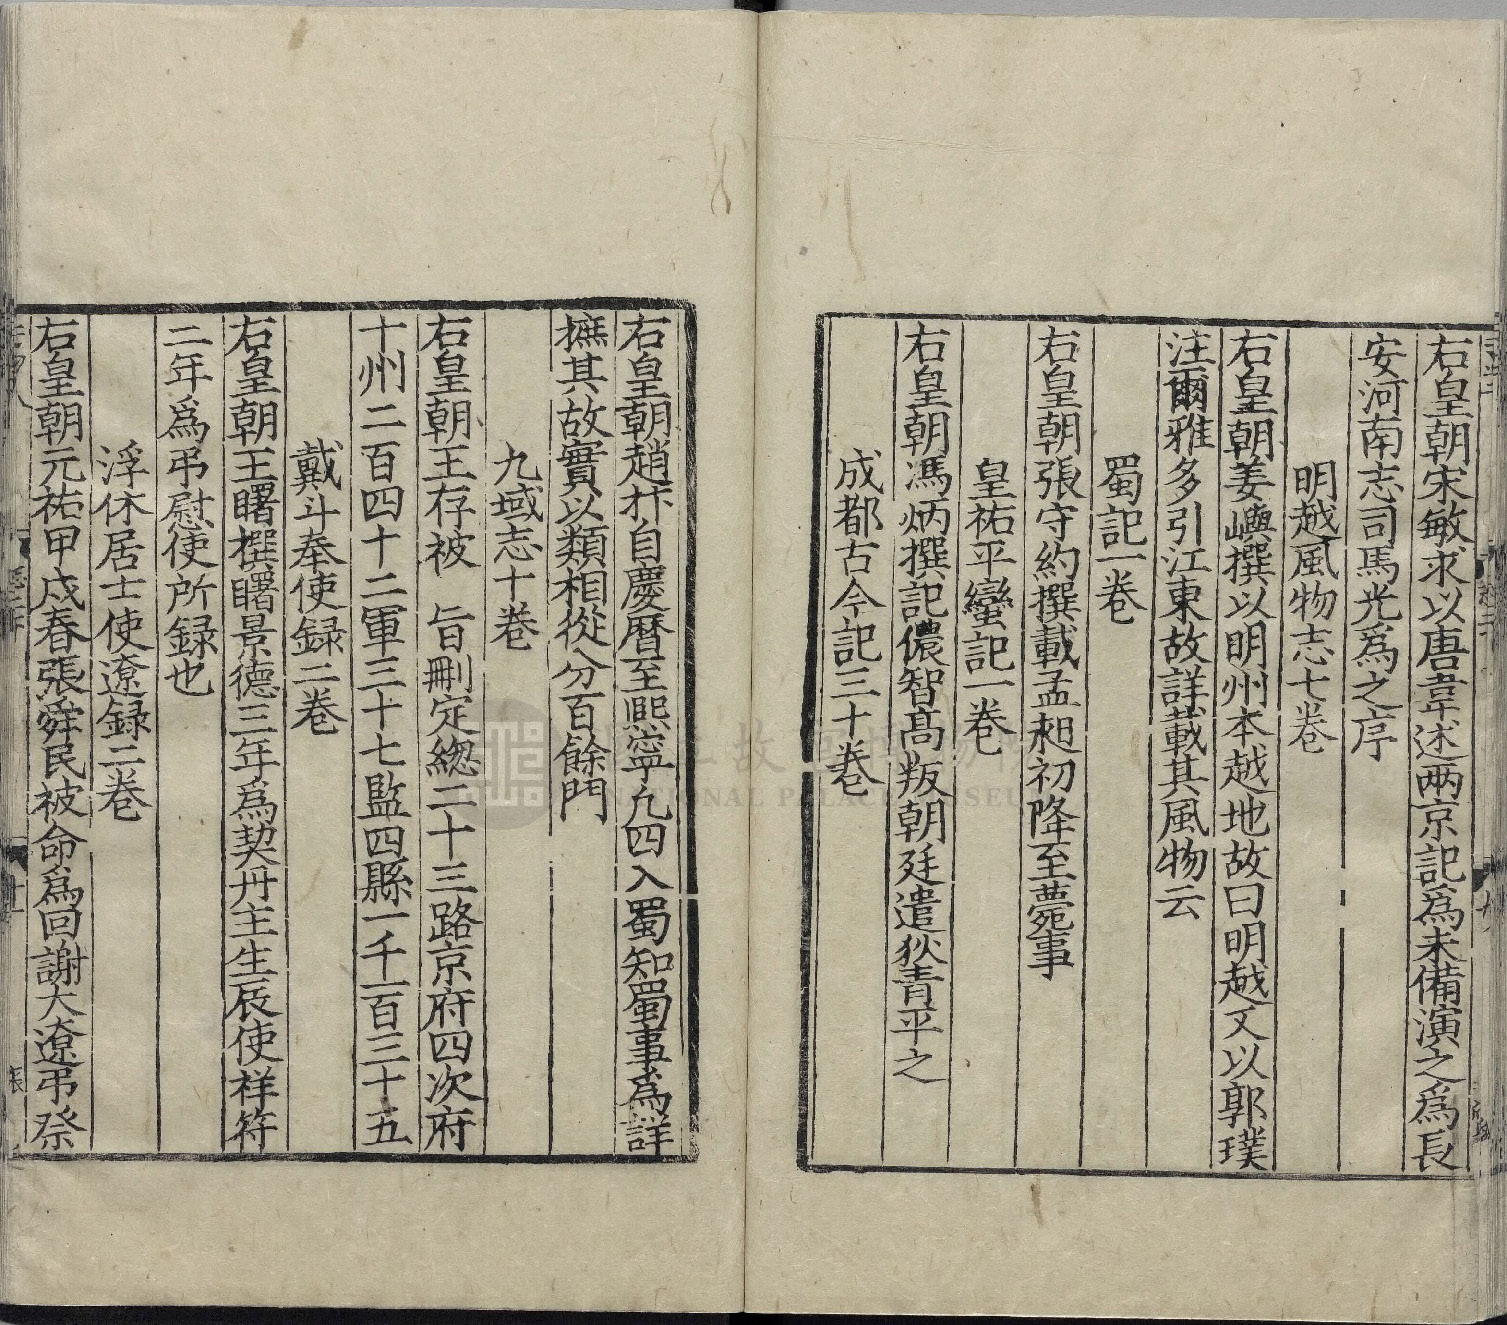 右皇朝宋敏求以唐韋述兩京記爲未備演之爲長
安河南志司馬光爲之序
明越風物志七卷
右皇朝姜嶼撰以明州本越地故曰明越又以郭璞
注爾雅多引江東故詳載其風物云
蜀記一卷
右皇朝張守約撰載孟昶初降至薨事
皇祐平蠻記一卷
右皇朝馮炳撰記儂智髙叛朝廷遣狄青平之
成都古今記三十卷
右皇朝趙抃自慶曆至熙寧九四入蜀知蜀事爲詳
摭其故實以類相從分百餘門
九域志十卷
右皇朝王存被 旨刪定緫二十三路京府四次府
十州二百四十二軍三十七監四縣一千一百三十五
戴斗奉使録二卷
右皇朝王曙撰曙景德三年爲契丹主生辰使祥符
二年爲弔慰使所録也
浮休居士使遼録二卷
右皇朝元祐甲戌春張舜民被命爲回謝大遼弔祭
NATIONAL PALACE MUSEUM